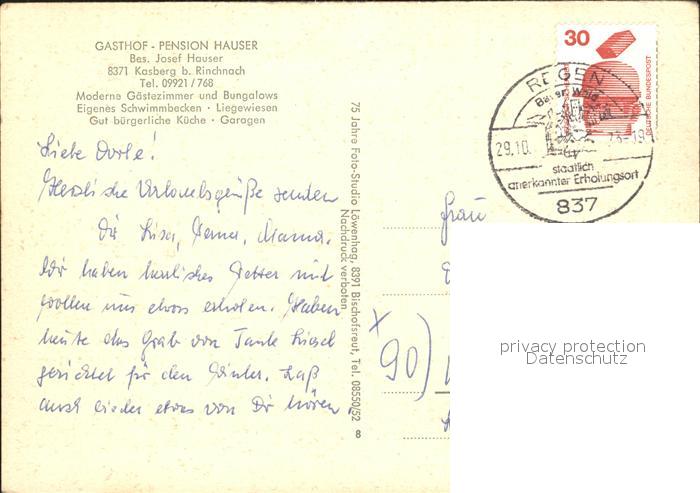 GASTHOF - PENSION HAUSER
Bes. Josef Hauser
8371 Kasberg b. Rinchnach
Tel. 09921/768
Moderne Gästezimmer und Bungalows
Eigenes Schwimmbecken · Liegewiesen
Gut bürgerliche Küche · Garagen
Liebe Dorle!
Herzliche Urlaubsgrüße senden
Dir Mama.
Wir haben herrliches Wetter und
wollen uns etwas erholen. Haben
heute das Grab von Tante
gerichtet für den Winter. Laß
auch wieder etwas von Dir hören
75 Jahre Foto-Studio Löwenhag, 8391 Bischofsreut, Tel. 08550/52
Nachdruck verboten
8
30
DEUTSCHE BUNDESPOST
REGEN
Bayer. Wald
29.10. 73-19
staatlich
anerkannter Erholungsort
837
Frau
90)
privacy protection
Datenschutz